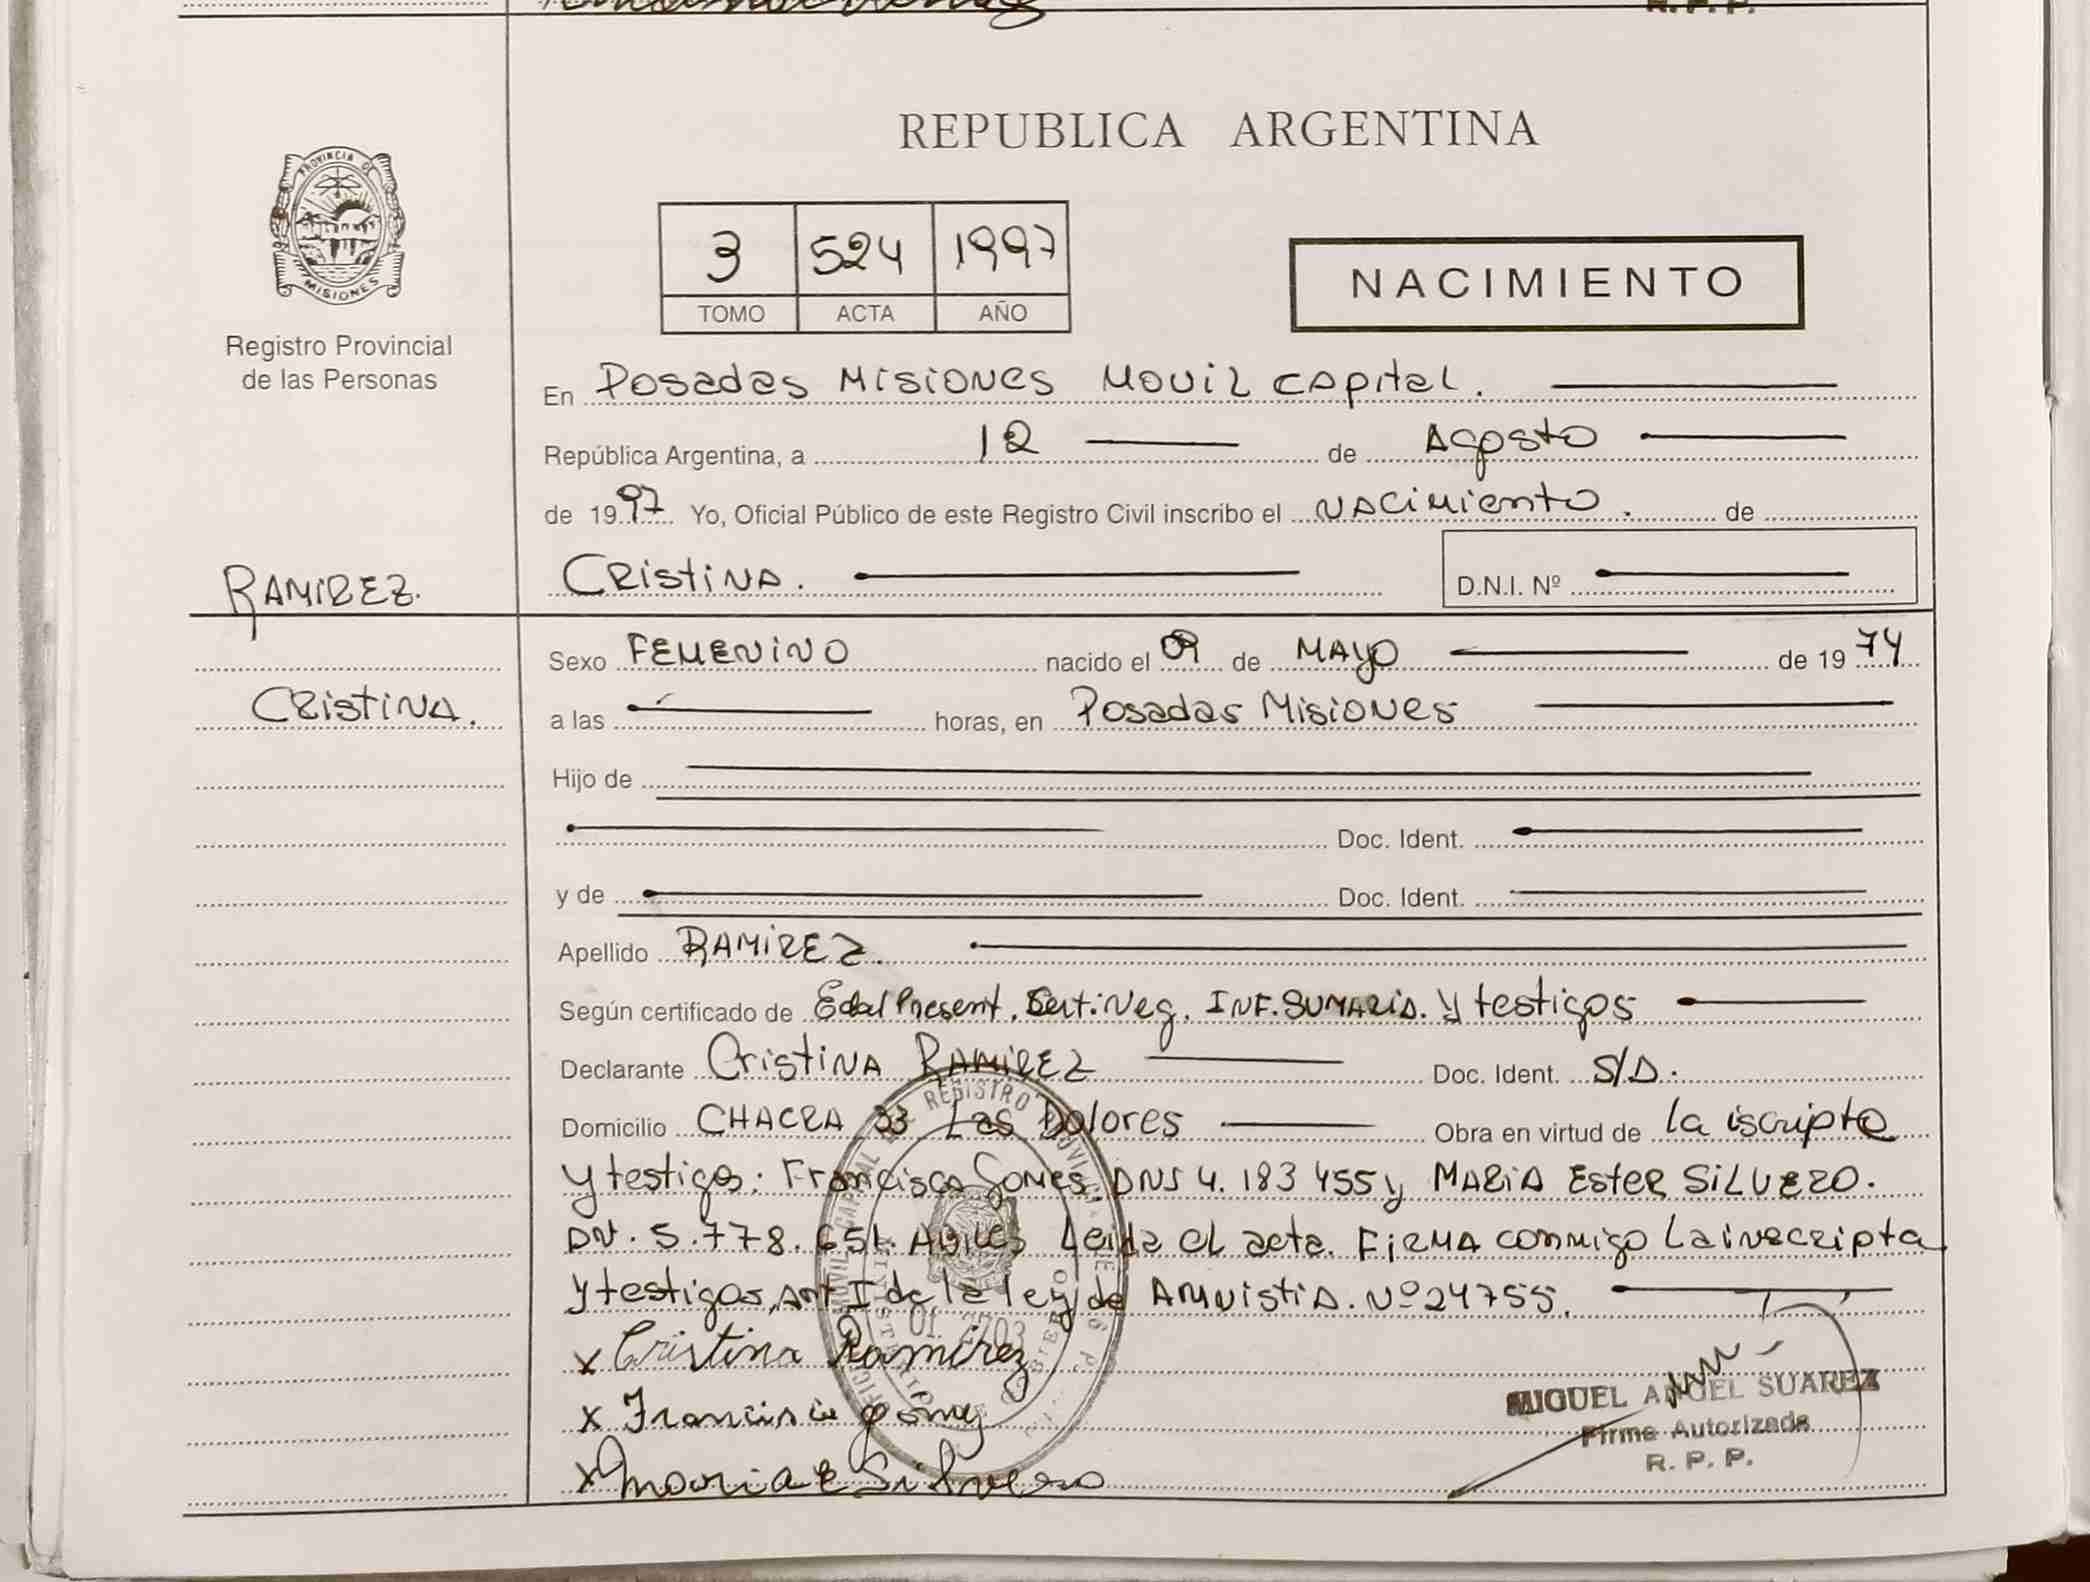 R. P. P.
REPUBLICA ARGENTINA
PROVINCIA DE
MISIONES
Registro Provincial
de las Personas
3 524 1997
TOMO ACTA AÑO
NACIMIENTO
En Posadas Misiones Movil Capital.
República Argentina, a 12 de Agosto
de 1997 Yo, Oficial Público de este Registro Civil inscribo el NACIMIENTO. de
RAMIREZ. CRISTINA. D.N.I. Nº
Sexo FEMENINO nacido el 09 de MAYO de 1974
CRISTINA. a las horas, en Posadas Misiones
Hijo de
Doc. Ident.
y de Doc. Ident.
Apellido RAMIREZ.
Según certificado de Edad Present. Cert. Neg. INF. SUMARIA. y testigos
Declarante Cristina RAMIREZ Doc. Ident. S/D.
Domicilio CHACRA 33 Las Dolores Obra en virtud de la iscripta
y testigos: Francisca Gomes. DNI 4.183 455 y MARIA Ester SILVERO.
DN. 5.778.651. Leida el acta. FIRMA conmigo La inscripta
y testigos, Art I de la ley de Amnistia. Nº 24755.
x Cristina Ramirez
x Francisca
x Maria E Silvero
REGISTRO
01. 2703
MIGUEL ANGEL SUAREZ
Firma Autorizada
R. P. P.